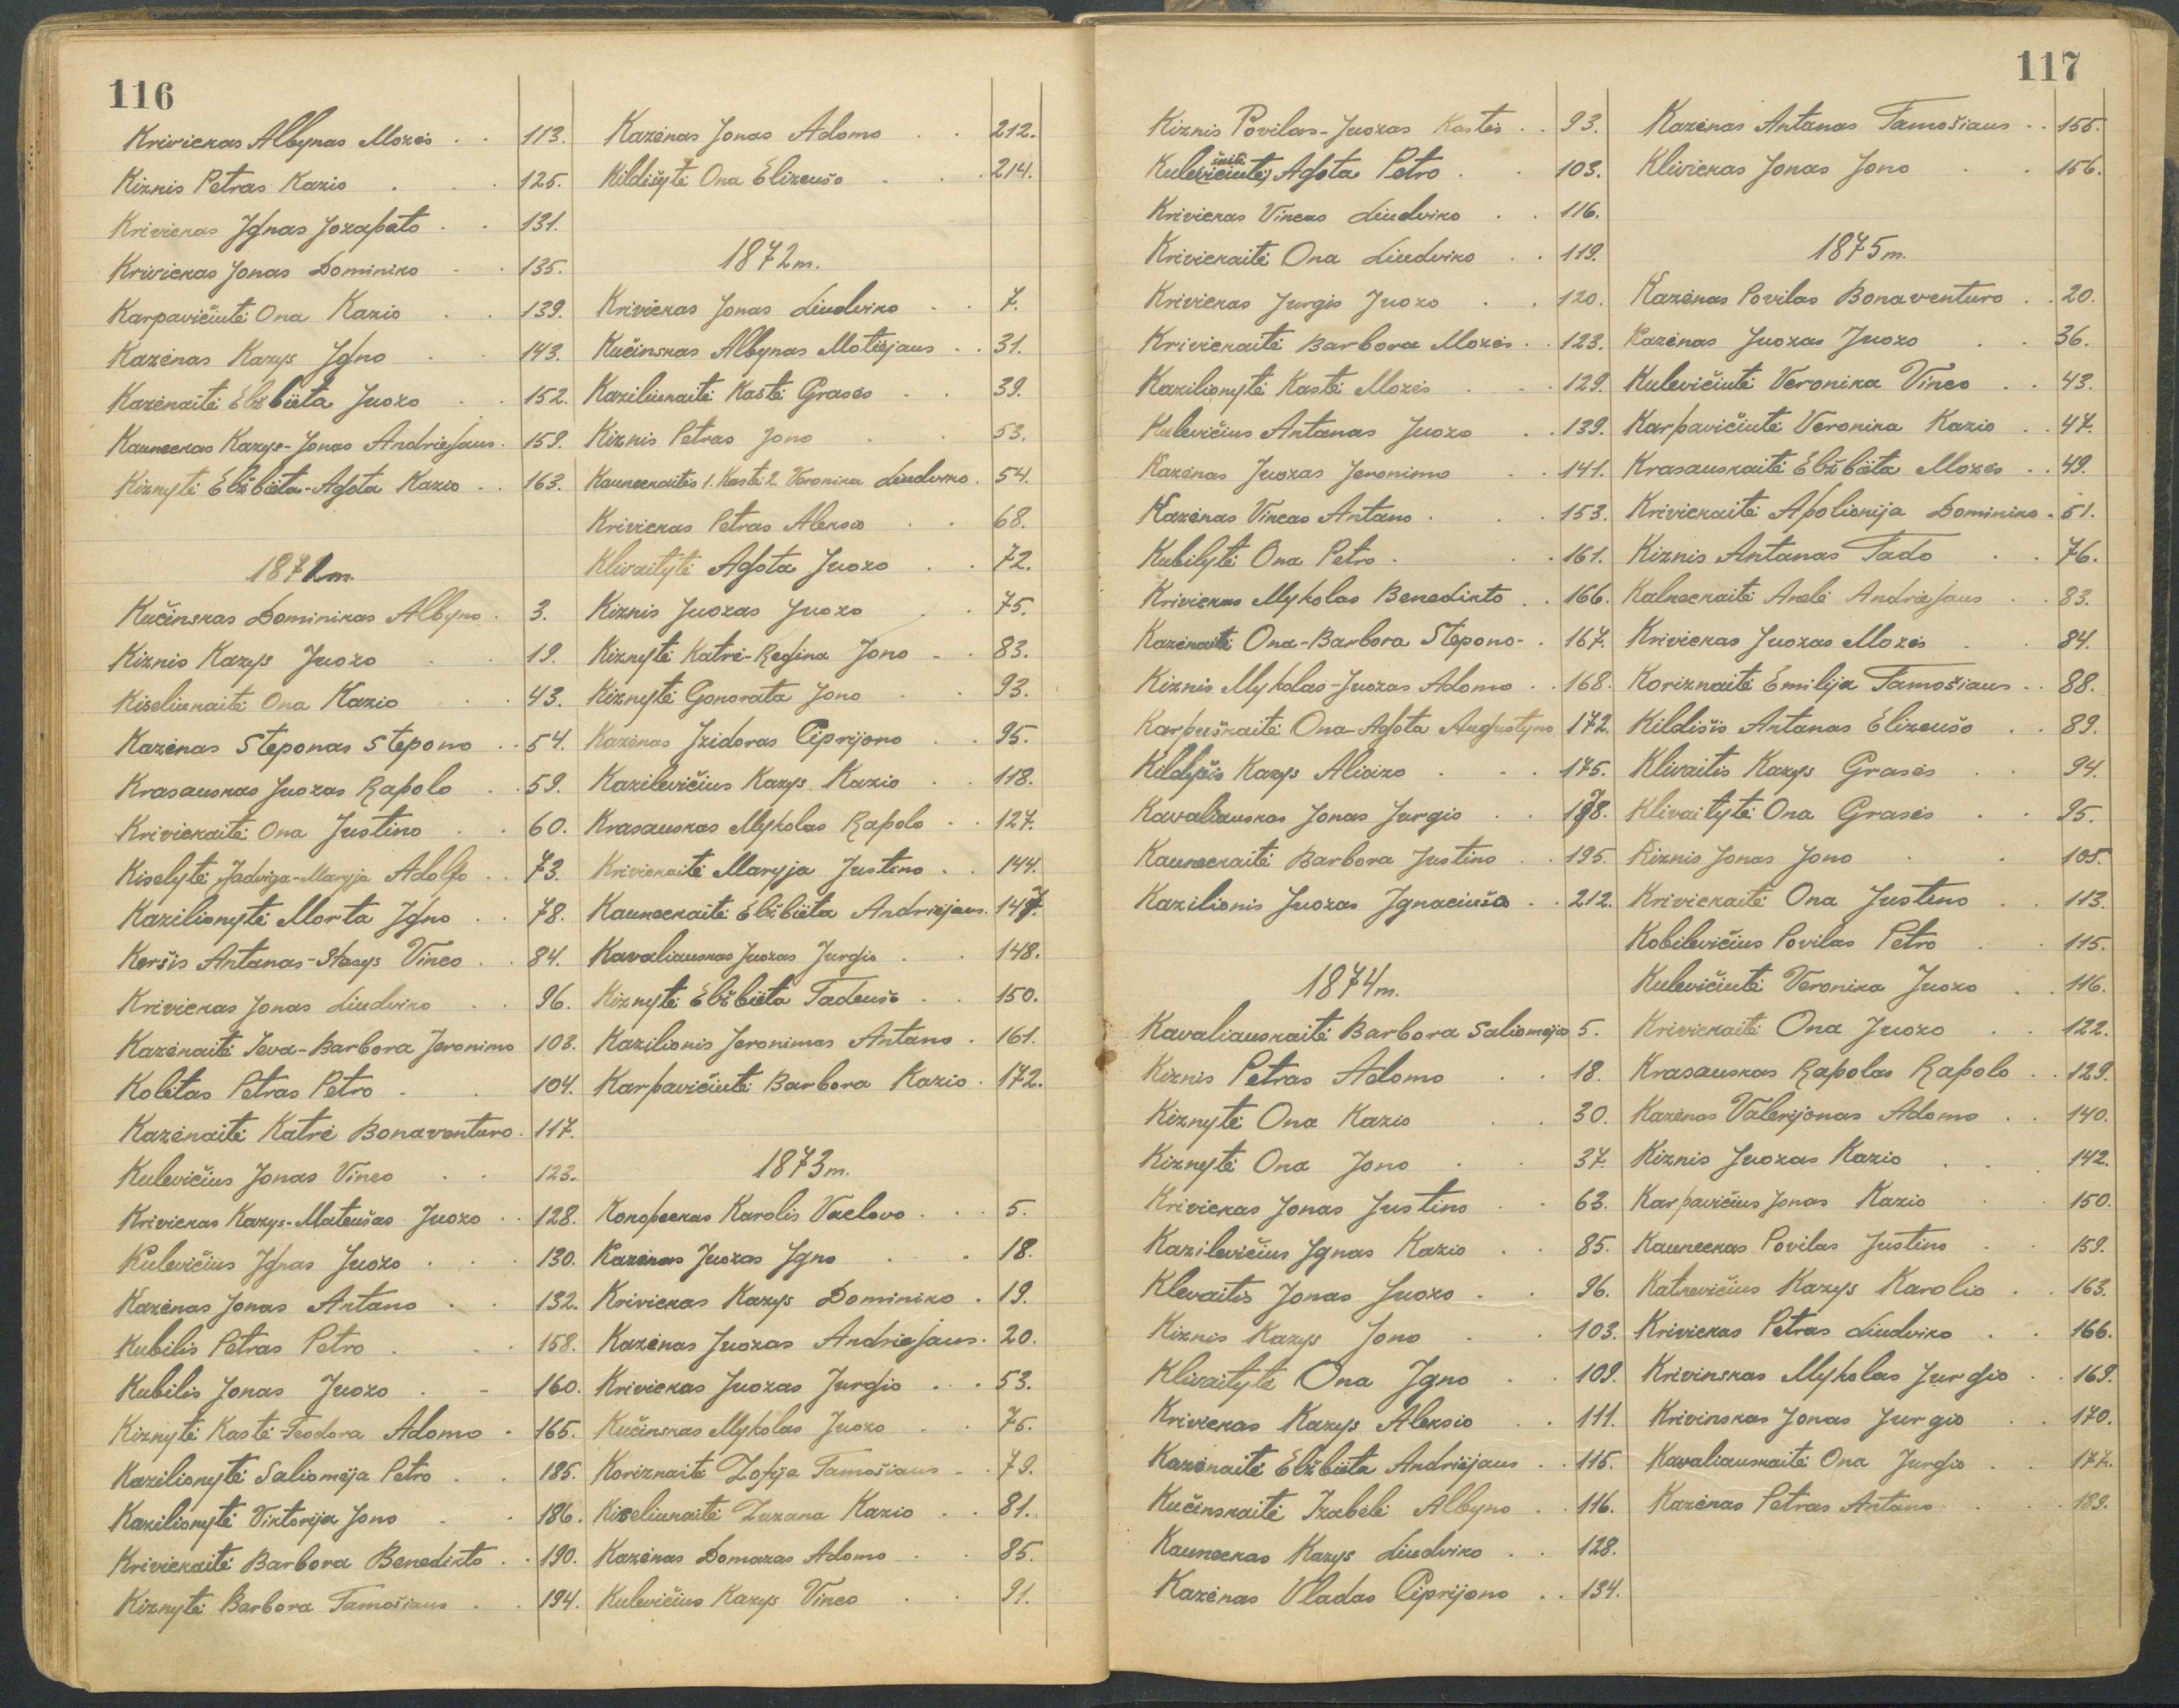 116
Krivickas Albynas Mozės . . 113.
Kiznis Petras Kazio . . . 125.
Krivickas Ignas Jozapato . . 131.
Krivickas Jonas Dominiko . . 135.
Karpavičiutė Ona Kazio . . 139.
Kazėnas Kazys Igno . . 143.
Kazėnaitė Elžbieta Juozo . . 152.
Kauneckas Kazys-Jonas Andriejaus . 159.
Kiznytė Elžbieta-Agota Kazio . . 163.
1871 m.
Kučinskas Dominikas Albyno . 3.
Kiznis Kazys Juozo . . 19.
Kiseliunaitė Ona Kazio . . 43.
Kazėnas Steponas Stepono . . 54.
Krasauskas Juozas Rapolo . . 59.
Krivickaitė Ona Justino . . 60.
Kiselytė Jadviga-Maryja Adolfo . . 73.
Kazilionytė Morta Igno . . 78.
Keršis Antanas-Stasys Vinco . . 84.
Krivickas Jonas Liudviko . . 96.
Kazėnaitė Ieva-Barbora Jeronimo 103.
Kolėtas Petras Petro . . 104.
Kazėnaitė Katrė Bonaventuro . 117.
Kulevičius Jonas Vinco . . 123.
Krivickas Kazys-Mateušas Juozo . . 128.
Kulevičius Ignas Juozo . . . 130.
Kazėnas Jonas Antano . . 132.
Kubilis Petras Petro . . . 158.
Kubilis Jonas Juozo . . 160.
Kiznytė Kastė-Teodora Adomo . 165.
Kazilionytė Saliomėja Petro . . 185.
Kazilionytė Viktorija Jono . . 186.
Krivickaitė Barbora Benedikto . . 190.
Kiznytė Barbora Tamošiaus . . 194.
Kazėnas Jonas Adomo . . 212.
Kildišytė Ona Elizeušo . . . 214.
1872 m.
Krivickas Jonas Liudviko . . 7.
Kučinskas Albynas Motiejaus . . 31.
Kaziliunaitė Kastė Grasės . . 39.
Kiznis Petras Jono . . 53.
Kauneckaitės 1. Kastė 2. Veronika Liudviko . 54.
Krivickas Petras Aleksio . . 68.
Klivaitytė Agota Juozo . . 72.
Kiznis Juozas Juozo . . 75.
Kiznytė Katrė-Regina Jono . . 83.
Kiznytė Gonorata Jono . . 93.
Kazėnas Izidoras Ciprijono . . 95.
Kazilevičius Kazys Kazio . . 118.
Krasauskas Mykolas Rapolo . . 127.
Krivickaitė Maryja Justino . . 144.
Kauneckaitė Elžbieta Andriejaus . 147.
Kavaliauskas Juozas Jurgio . . 148.
Kiznytė Elžbieta Tadeušo . . 150.
Kazilionis Jeronimas Antano . 161.
Karpavičiutė Barbora Kazio . 172.
1873 m.
Konopeckas Karolis Vaclovo . . . 5.
Kazėnas Juozas Igno . . 18.
Krivickas Kazys Dominiko . 19.
Kazėnas Juozas Andriejaus . 20.
Krivickas Juozas Jurgio . . . 53.
Kučinskas Mykolas Juozo . . 75.
Koriznaitė Zofija Tamošiaus . . 79.
Kiseliunaitė Zuzana Kazio . . 81.
Kazėnas Domazas Adomo . . 85.
Kulevičius Kazys Vinco . . 91.
117
Kiznis Povilas-Juozas Kastės . . 93.
Kulevičiutė, Agota Petro . . 103.
Krivickas Vincas Liudviko . . 116.
Krivickaitė Ona Liudviko . . 119.
Krivickas Jurgis Juozo . . 120.
Krivickaitė Barbora Mozės . . 123.
Kazilionytė Kastė Mozės . . . 129.
Kulevičius Antanas Juozo . . 139.
Kazėnas Juozas Jeronimo . . 141.
Kazėnas Vincas Antano . . . 153.
Kubilytė Ona Petro . . . 161.
Krivickas Mykolas Benedikto . . 166.
Kazėnaitė Ona-Barbora Stepono . . 167.
Kiznis Mykolas-Juozas Adomo . . 168.
Karpuškaitė Ona-Agota Augustyno 172.
Kildyšis Kazys Alioizo . . . 175.
Kavaliauskas Jonas Jurgio . . 178.
Kauneckaitė Barbora Justino . . 195.
Kazilionis Juozas Ignaciušo . . 212.
1874 m.
Kavaliauskaitė Barbora Saliomėjos 5.
Kiznis Petras Adomo . . 18.
Kiznytė Ona Kazio . . 30.
Kiznytė Ona Jono . . 37.
Krivickas Jonas Justino . . 63.
Kazilevičius Ignas Kazio . . 85.
Klevaitis Jonas Juozo . . 96.
Kiznis Kazys Jono . . 103.
Klivaitytė Ona Igno . . 109.
Krivickas Kazys Aleksio . . 111.
Kazėnaitė Elžbieta Andriejaus . . 115.
Kučinskaitė Izabelė Albyno . . 116.
Kauneckas Kazys Liudviko . . 128.
Kazėnas Vladas Ciprijono . . 134.
Kazėnas Antanas Tamošiaus . . 155.
Klivickas Jonas Jono . . 156.
1875 m.
Kazėnas Povilas Bonaventuro . . 20.
Kazėnas Juozas Juozo . . 36.
Kulevičiutė Veronika Vinco . . 43.
Karpavičiutė Veronika Kazio . . 47.
Krasauskaitė Elžbieta Mozės . . 49.
Krivickaitė Apolionija Dominiko . 51.
Kiznis Antanas Tado . . 76.
Kalneckaitė Anelė Andriejaus . . 83.
Krivickas Juozas Mozės . . 84.
Koriznaitė Emilija Tamošiaus . . 88.
Kildišis Antanas Elizeušo . . 89.
Klivaitis Kazys Grasės . . 94.
Klivaitytė Ona Grasės . . 95.
Kiznis Jonas Jono . . 105.
Krivickaitė Ona Justino . . 113.
Kobilevičius Povilas Petro . . 115.
Kulevičiutė Veronika Juozo . . 116.
Krivickaitė Ona Juozo . . 122.
Krasauskas Rapolas Rapolo . . 129.
Kazėnas Valerijonas Adomo . . 140.
Kiznis Juozas Kazio . . . 142.
Karpavičius Jonas Kazio . . 150.
Kauneckas Povilas Justino . . 159.
Katkevičius Kazys Karolio . . 163.
Krivickas Petras Liudviko . . 166.
Krivinskas Mykolas Jurgio . . 169.
Krivinskas Jonas Jurgio . . 170.
Kavaliauskaitė Ona Jurgio . . 177.
Kazėnas Petras Antano . . . 189.